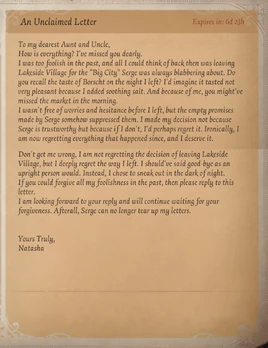 An Unclaimed Letter
Expires in: 6d 23h
To my dearest Aunt and Uncle,
How is everything? I've missed you dearly.
I was too foolish in the past, and all I could think of back then was leaving
Lakeside Village for the "Big City" Serge was always blabbering about. Do
you recall the taste of Borscht on the night I left? I'd imagine it tasted not
very pleasant because I added soothing salt. And because of me, you might've
missed the market in the morning.
I wasn't free of worries and hesitance before I left, but the empty promises
made by Serge somehow suppressed them. I made my decision not because
Serge is trustworthy but because if I don't, I'd perhaps regret it. Ironically, I
am now regretting everything that happened since, and I deserve it.
Don't get me wrong, I am not regretting the decision of leaving Lakeside
Village, but I deeply regret the way I left. I should've said good-bye as an
upright person would. Instead, I chose to sneak out in the dark of night.
If you could forgive all my foolishness in the past, then please reply to this
letter.
I am looking forward to your reply and will continue waiting for your
forgiveness. Afterall, Serge can no longer tear up my letters.
Yours Truly,
Natasha